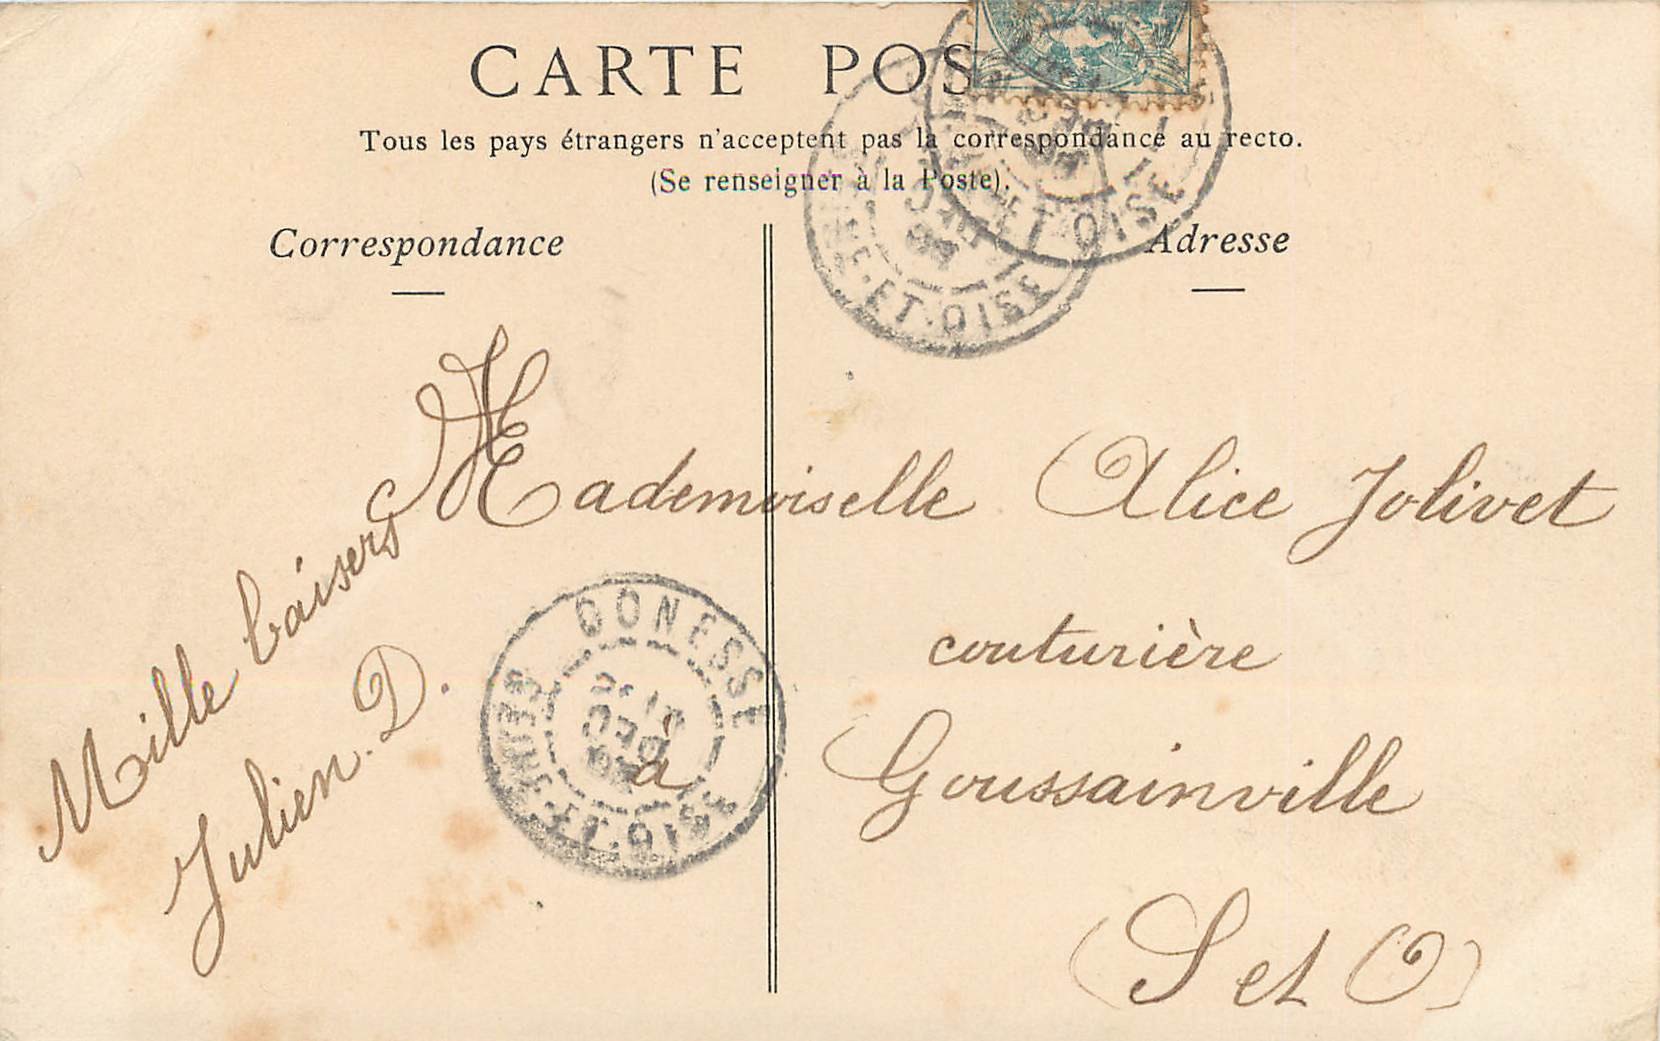 CARTE POS
Tous les pays étrangers n'acceptent pas la correspondance au recto.
(Se renseigner à la Poste).
Correspondance
Adresse
Mademoiselle Alice Jolivet
couturière
à Goussainville
(S et O)
Mille baisers
Julien. D.
GONESSE
SEINE-ET-OISE
DEC
ET-OISE
ET OISE